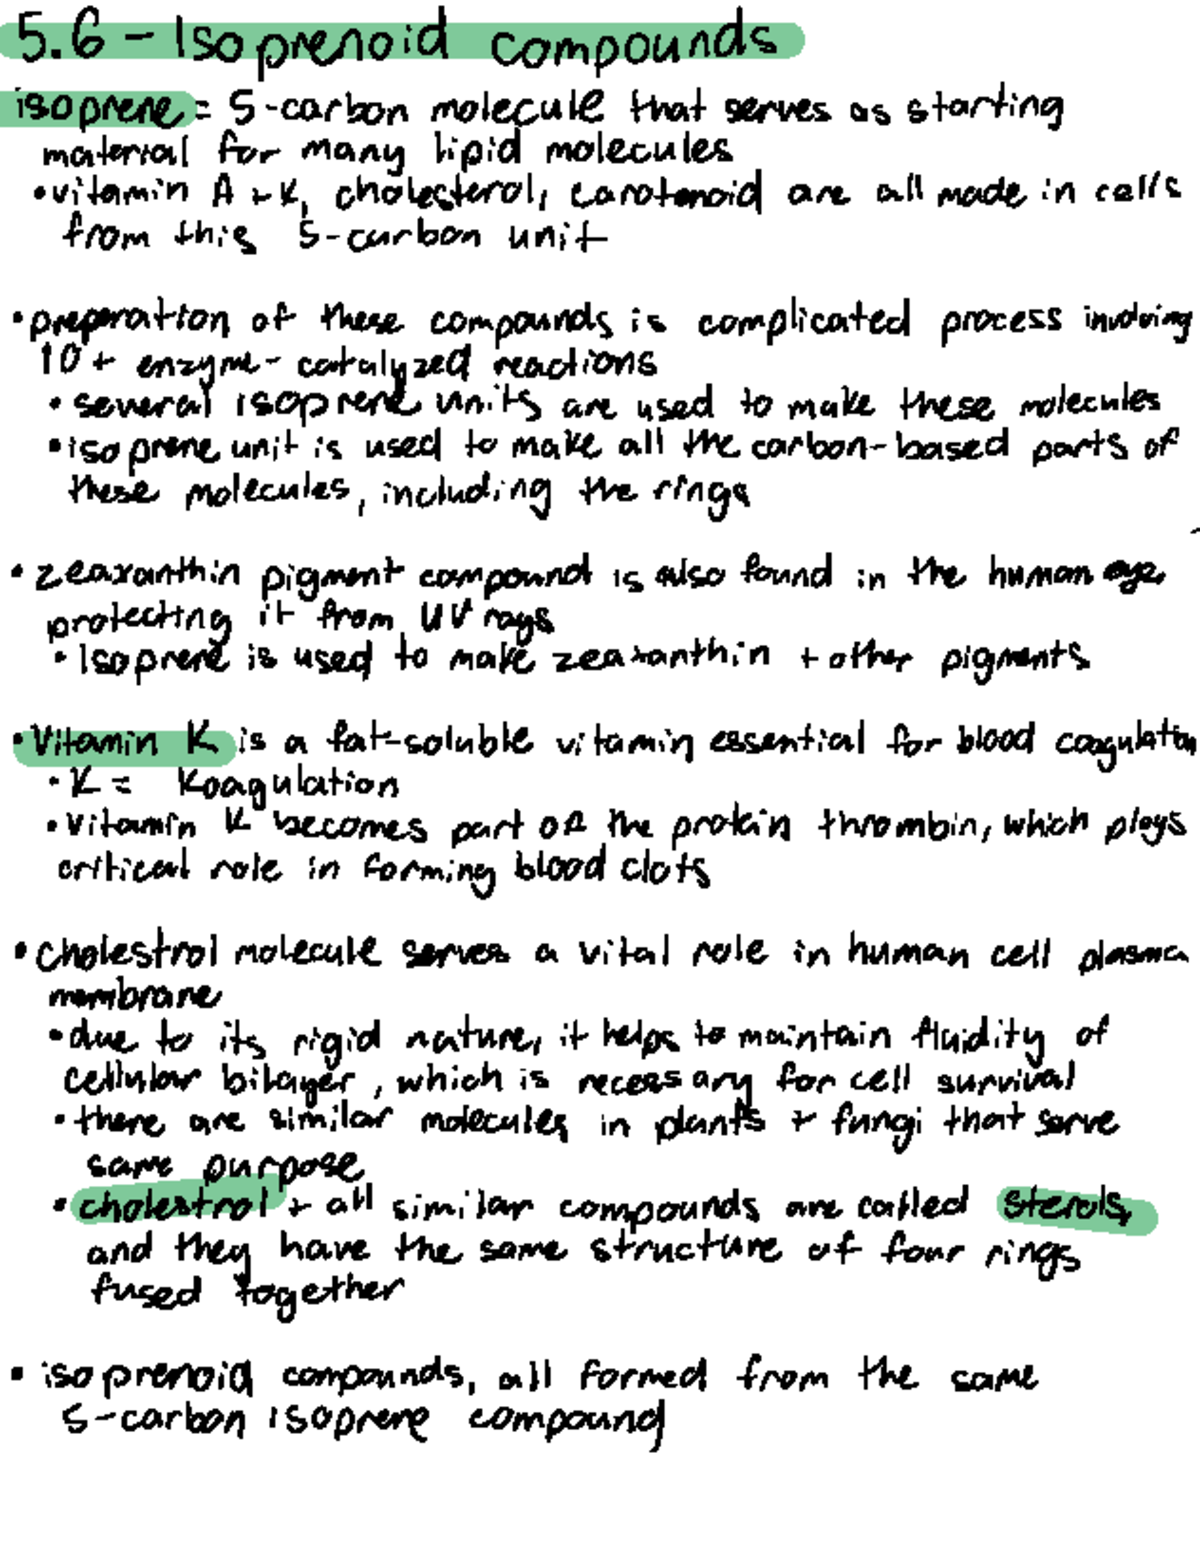 5.6 - Isoprenoid compounds
isoprene = 5-carbon molecule that serves as starting
material for many lipid molecules
• vitamin A + K, cholesterol, carotenoid are all made in cells
from this 5-carbon unit
• preparation of these compounds is complicated process involving
10+ enzyme-catalyzed reactions
• several isoprene units are used to make these molecules
• isoprene unit is used to make all the carbon-based parts of
these molecules, including the rings
• zeaxanthin pigment compound is also found in the human eye,
protecting it from UV rays
• Isoprene is used to make zeaxanthin + other pigments
• Vitamin K is a fat-soluble vitamin essential for blood coagulation
• K = Koagulation
• Vitamin K becomes part of the protein thrombin, which plays
critical role in forming blood clots
• cholestrol molecule serves a vital role in human cell plasma
membrane
• due to its rigid nature, it helps to maintain fluidity of
cellular bilayer, which is necessary for cell survival
• there are similar molecules in plants + fungi that serve
same purpose
• cholestrol + all similar compounds are called sterols,
and they have the same structure of four rings
fused together
• isoprenoid compounds, all formed from the same
5-carbon isoprene compound